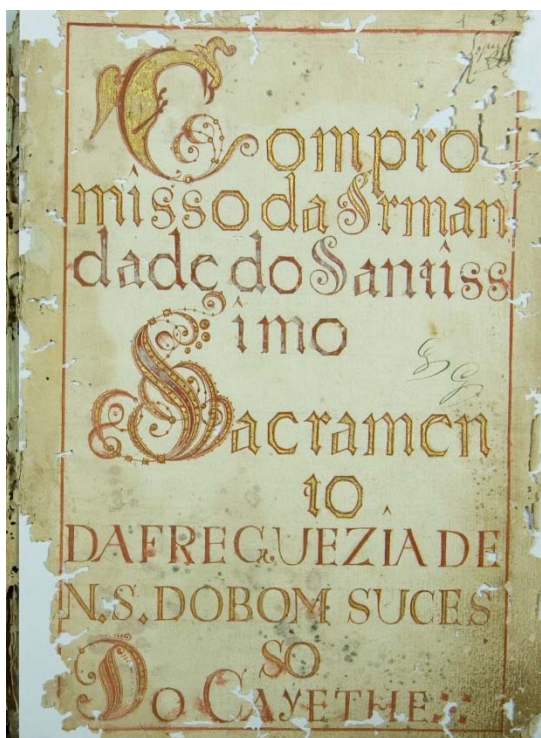 Compro
misso da Irman
dade do Santiss
imo
Sacramen
to
DA FREGUEZIA DE
N.S. DO BOM SUCES
SO
DO CAYETHE